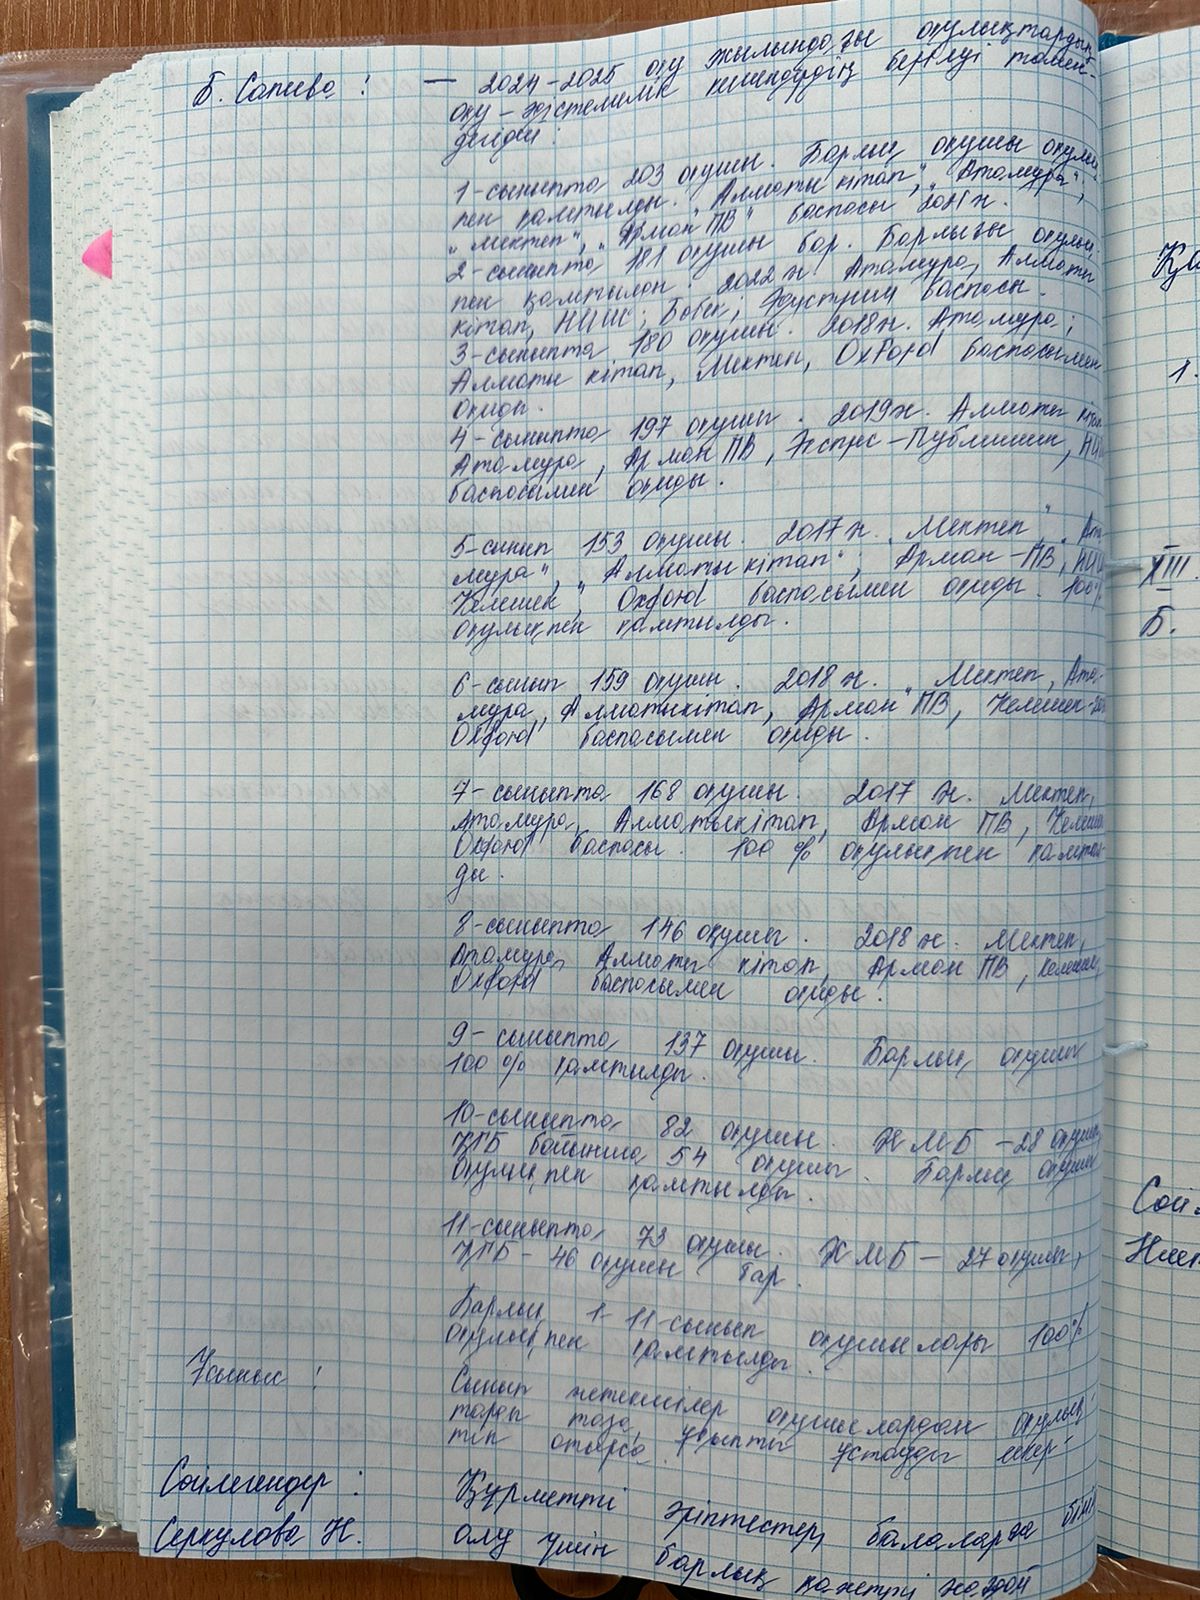 Б. Сапиева : — 2024-2025 оқу жылындағы оқулықтардың
оқу-әдістемелік кешендердің берілуі төмен-
дегідей :
1-сыныпта 203 оқушы. Барлық оқушы оқулық-
пен қамтылды. "Алматыкітап", "Атамұра",
"Мектеп", "Арман ПВ" баспасы
2-сыныпта 181 оқушы бар. Барлығы оқулық-
пен қамтылған. 2022 ж Атамұра, Алматы
кітап, НИШ; Бөбек; баспасы.
3-сыныпта 180 оқушы. 2018 ж. Атамұра;
Алматы кітап, Мектеп, Oxford баспасымен
оқиды.
4-сыныпта 197 оқушы. 2019 ж. Алматы кітап
Атамұра, Арман ПВ, Экспрес-Публишин, НИШ
баспасымен оқиды.
5-сынып 153 оқушы. 2017 ж. "Мектеп", "Ата
мұра", "Алматыкітап"; Арман-ПВ, НИШ
Келешек, Oxford баспасымен оқиды. 100%
оқулықпен қамтылды.
6-сынып 159 оқушы. 2018 ж. Мектеп, Ата-
мұра, Алматыкітап, Арман ПВ, Келешек-
Oxford баспасымен оқиды.
7-сыныпта 168 оқушы. 2017 ж. Мектеп,
Атамұра, Алматыкітап, Арман ПВ, Келешек
Oxford баспасы. 100% оқулықпен қамтыл-
ды.
8-сыныпта 146 оқушы. 2018 ж. Мектеп,
Атамұра, Алматы кітап, Арман ПВ, Келешек,
Oxford баспасымен оқиды.
9-сыныпта 137 оқушы. Барлық оқушы
100% қамтылды.
10-сыныпта 82 оқушы. ЖМБ-28 оқушы,
ҚГБ бойынша 54 оқушы. Барлық оқушы
оқулықпен қамтылды.
11-сыныпта 73 оқушы. ЖМБ-27 оқушы,
ҚГБ-46 оқушы бар.
Барлық 1-11-сынып оқушылары 100%
оқулықпен қамтылды.
Ұсыныс : Сынып жетекшілер оқушылардан оқулық-
тарын таза, ұқыпты ұстауды ескер-
тіп отырса.
Сөйлегендер : Құрметті әріптестер, балаларға білім
Серкулова Н. алу үшін барлық қажетті жағдай
Қа
1.
XIII.
Б.
Сөй